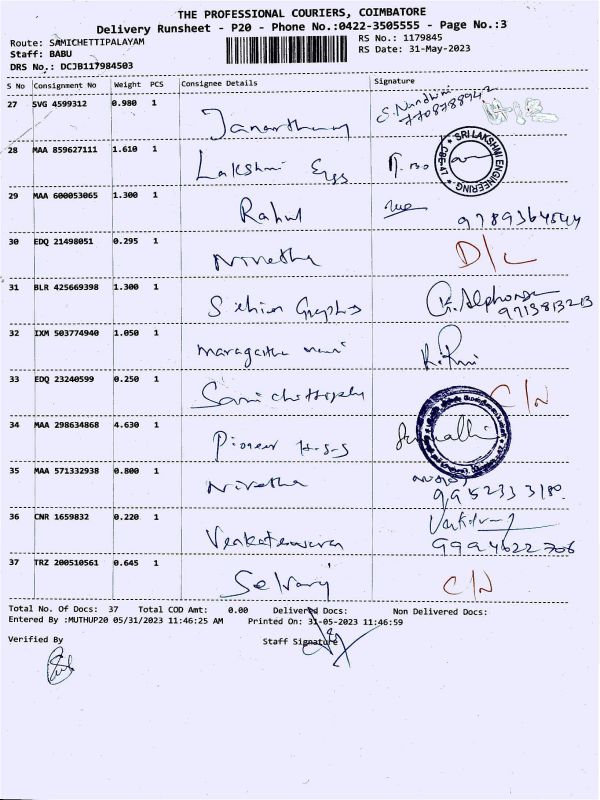 THE PROFESSIONAL COURIERS, COIMBATORE
Delivery Runsheet - P20 - Phone No.:0422-3505555 - Page No.:3
Route: SAMICHETTIPALAYAM RS No.: 1179845
Staff: BABU RS Date: 31-May-2023
DRS No.: DCJB117984503
S No Consignment No Weight PCS Consignee Details Signature
27 SVG 4599312 0.980 1 7708788942
28 MAA 859627111 1.610 1 Lakshmi Eggs SRI LAKSHMI ENGINEERING CBE-47
29 MAA 600053065 1.300 1 Rahul
30 EDQ 21498051 0.295 1 Nivetha D/L
31 BLR 425669398 1.300 1 K. Alphonse
9713813213
32 IXM 503774940 1.050 1
33 EDQ 23240599 0.250 1 C/N
34 MAA 298634868 4.630 1 Pioneer H-S-S
35 MAA 571332938 0.800 1 Nivetha 9952333180.
36 CNR 1659832 0.220 1 Venkateswaran 9994622706
37 TRZ 200510561 0.645 1 Selvaraj C/N
Total No. Of Docs: 37 Total COD Amt: 0.00 Delivered Docs: Non Delivered Docs:
Entered By :MUTHUP20 05/31/2023 11:46:25 AM Printed On: 31-05-2023 11:46:59
Verified By Staff Signature